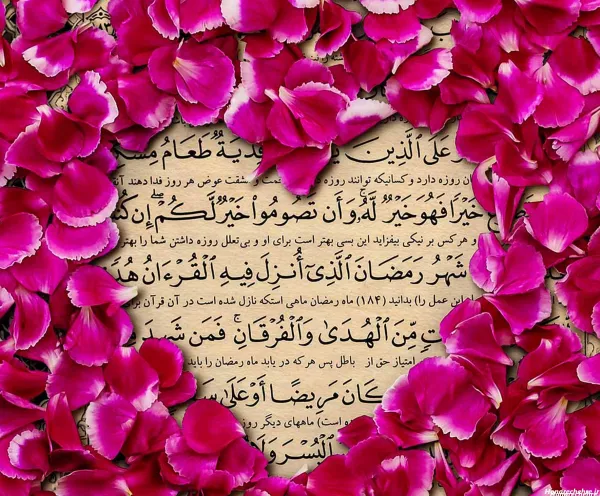 عَلَى ٱلَّذِينَ فِدْيَةٌ طَعَامُ
روزه دارد و کسانیکه توانند روزه مشقت عوض هر روز فدا دهند
خَيْرًا فَهُوَ خَيْرٌ لَّهُۥ وَأَن تَصُومُوا۟ خَيْرٌ لَّكُمْ إِن
و هر کس بر نیکی بیفزاید این بسی بهتر است برای او و بی‌تعلل روزه داشتن شما را بهتر
شَهْرُ رَمَضَانَ ٱلَّذِىٓ أُنزِلَ فِيهِ ٱلْقُرْءَانُ
این عمل را) بدانید (۱۸۴) ماه رمضان ماهی استکه نازل شده است در آن قرآن برای
مِّنَ ٱلْهُدَىٰ وَٱلْفُرْقَانِ فَمَن شَهِدَ
امتیاز حق از باطل پس هر که در یابد ماه رمضان را باید
كَانَ مَرِيضًا أَوْ عَلَىٰ
است) ماههای دیگر
ٱلْيُسْرَ وَلَا